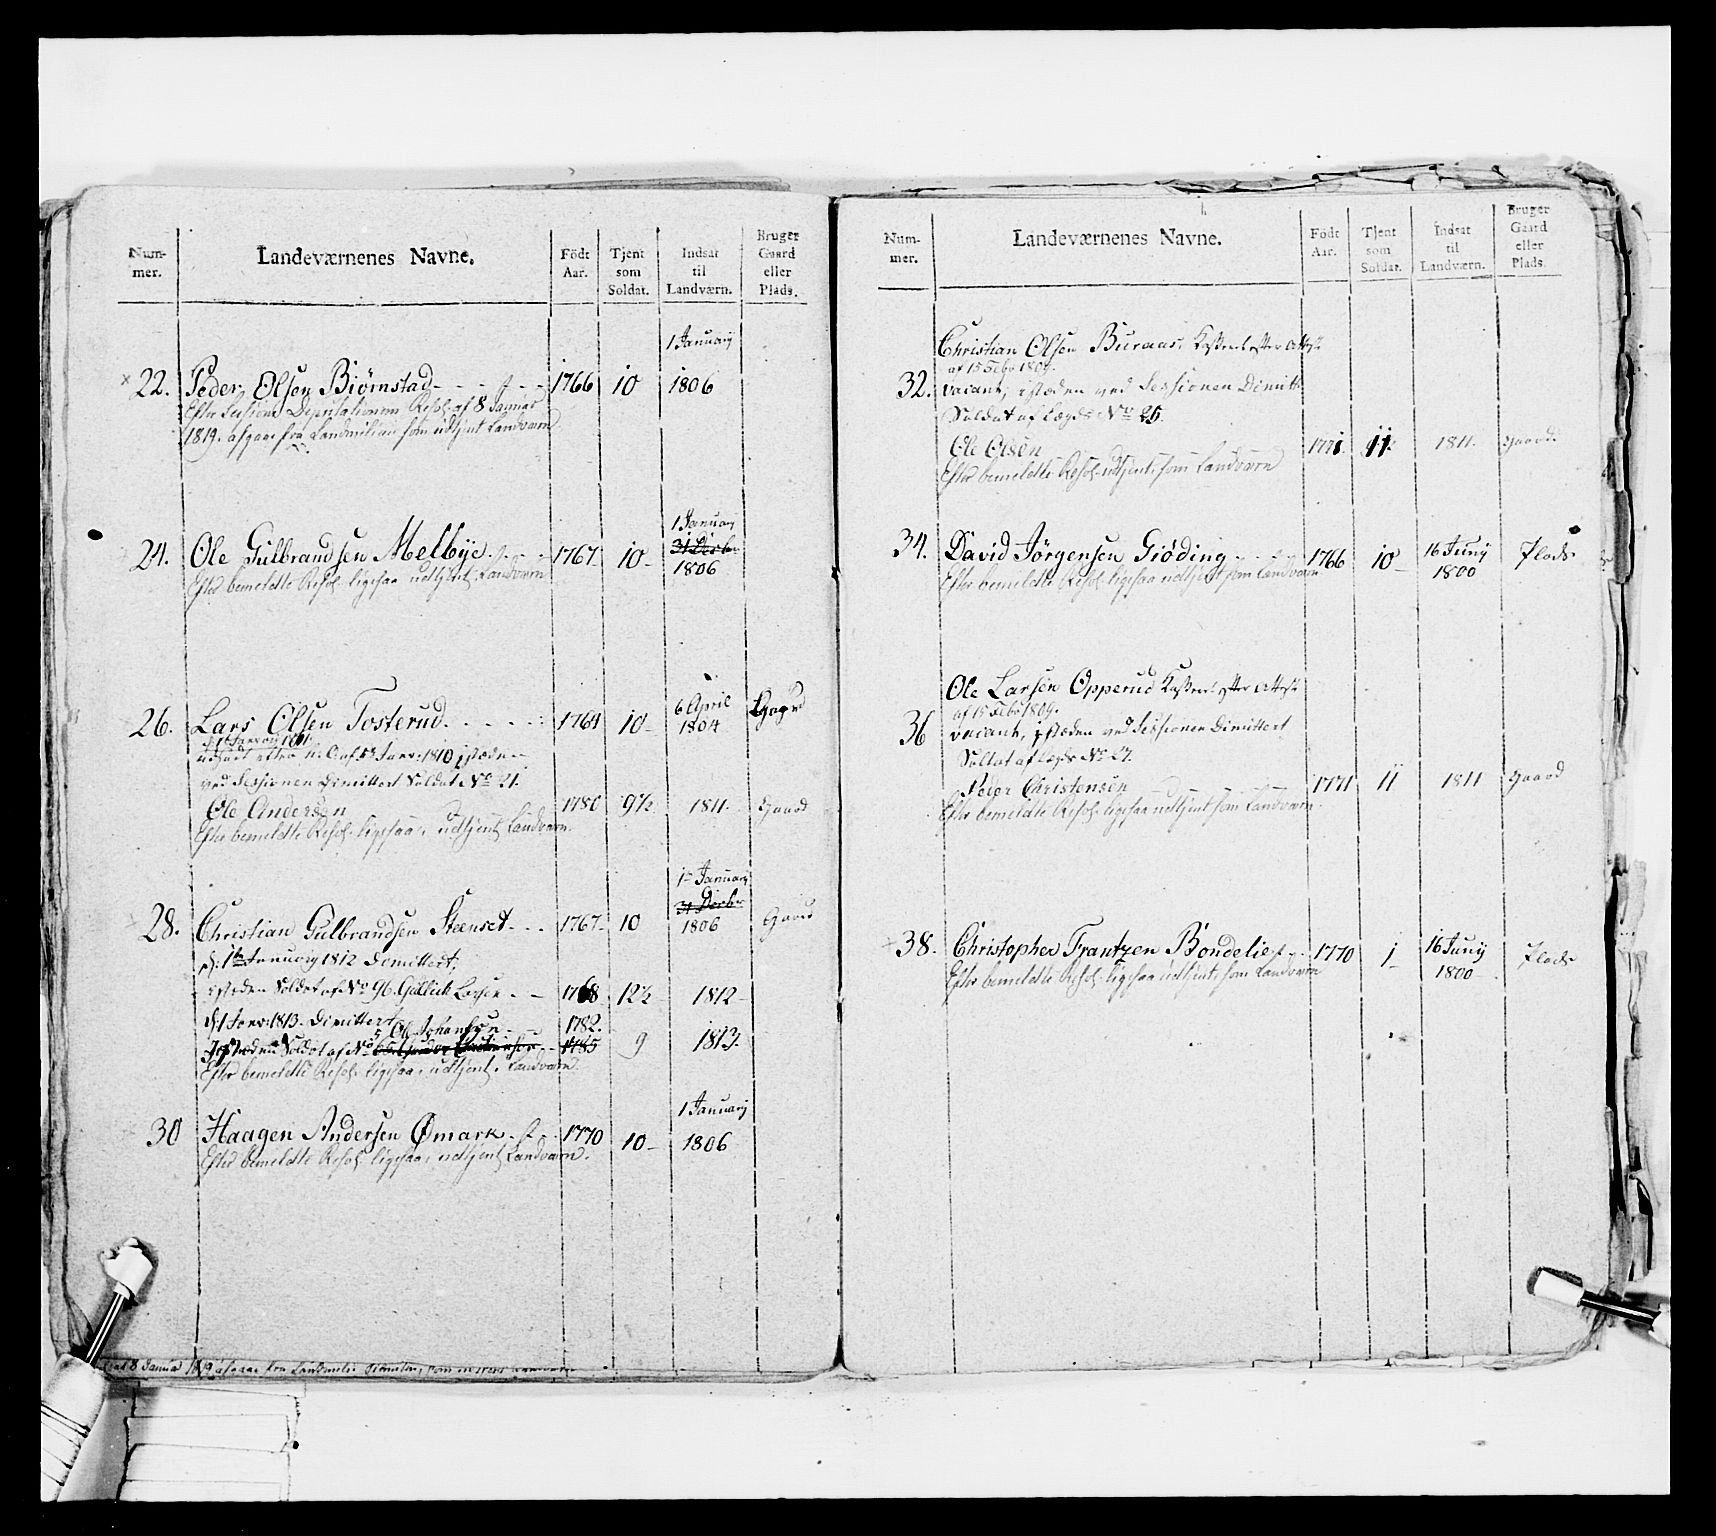 Num-
mer.
Landeværnenes Navne.
Födt
Aar.
Tjent
som
Soldat.
Indsat
til
Landværn.
Bruger
Gaard
eller
Plads.
1 Januarij
22. Peder Olsen Biørnstad 1766 10 1806
Efter Sessions Deputationens Resol. af 8 Januar
1819. afgaar fra Landmilicien som udtjent Landværn
1 Januarij
31 Decbr
24. Ole Gulbrandsen Melbye 1767 10 1806
Efter bemeldte Resol. ligesaa udtjent Landværn
6 April
26. Lars Olsen Tosterud 1764 10 1804 Gaard
1811
1810 istæden
ved Sessionen Dimittert Soldat No 21.
Ole Andersen 1780 9½ 1811. Gaard
Efter bemeldte Resol. ligesaa udtjent Landværn.
1 Januarij
31 Decbr
28. Christian Gulbrandsen Steenset 1767 10 1806 Gaard
d. 1 January 1812 Dimittert,
istæden Soldat af No 96. Larsen 1768 12½ 1812
d. 1 Janr: 1813. Dimittert
Ole Johansen 1782.
Soldat af No 1785 9 1813.
Efter bemeldte Resol. ligesaa udtjent Landværn.
1 Januarij
30 Haagen Andersen Ømark 1770 10 1806
Efter bemeldte Resol. ligesaa udtjent Landværn.
8 Januar 1819 afgaar fra Landmilicien
Num-
mer.
Landeværnenes Navne.
Födt
Aar.
Tjent
som
Soldat.
Indsat
til
Landværn.
Bruger
Gaard
eller
Plads.
Christian Olsen Buraas, Kasseret efter Attest
af 15 Febr 1809.
32. vacant, istæden ved Sessionen Dimitt
Soldat af Lægds No 25.
Ole Olsen 1771 11 1811. Gaard
Efter bemeldte Resol. udtjent som Landværn
34. David Jørgensen Giøding 1766 10 16 Junij 1800 Plads
Efter bemeldte Resol. ligesaa udtjent som Landværn
Ole Larsen Opperud Kasseret efter Attest
af 15 Febr 1809.
36 vacant, istæden ved Sessionen Dimittert
Soldat af Lægds No 27.
Peder Christensen 1771 11 1811 Gaard
Efter bemeldte Resol. ligesaa udtjent som Landværn.
38. Christopher Frantzen Bondelie 1770 1 16 Junij 1800 Plads
Efter bemeldte Resol. ligesaa udtjent som Landværn